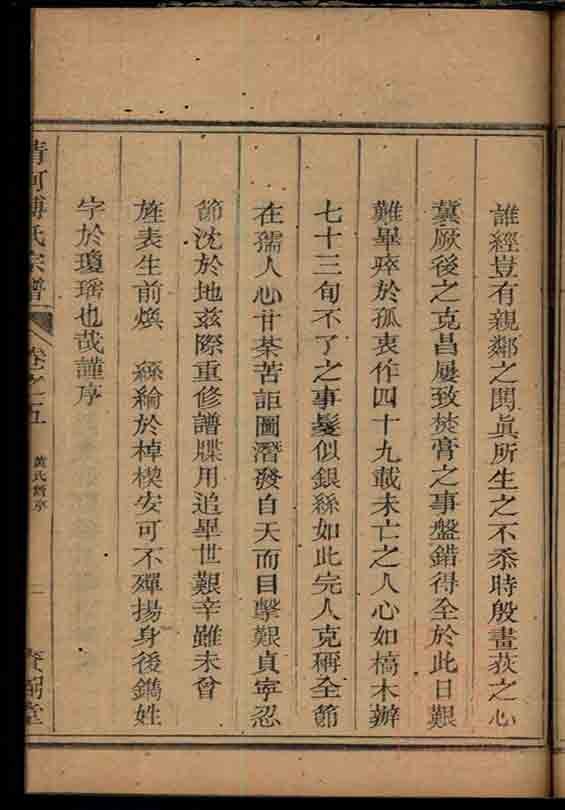 誰經豈有親鄰之閧眞所生之不忝時殷畫荻之心
冀厥後之克昌屢致焚膏之事盤錯得全於此日艱
難畢瘁於孤衷作四十九載未亡之人心如槁木辦
七十三旬不了之事髮似銀絲如此完人克稱全節
在孺人心甘茶苦詎圖潛發自天而目擊艱貞寧忍
節沈於地茲際重修譜牒用追畢世艱辛雖未曾
旌表生前煥 絲綸於棹楔安可不殫揚身後鐫姓
字於瓊瑤也哉謹序
清河傅氏宗譜
卷之五
黃氏節序
一